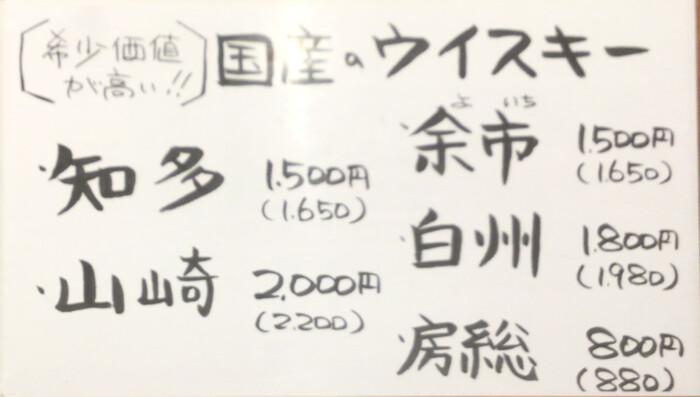 希少価値
が高い!!
国産のウイスキー
・知多 1.500円
(1.650)
・山崎 2.000円
(2.200)
よいち
・余市 1.500円
(1.650)
・白州 1.800円
(1.980)
・房総 800円
(880)